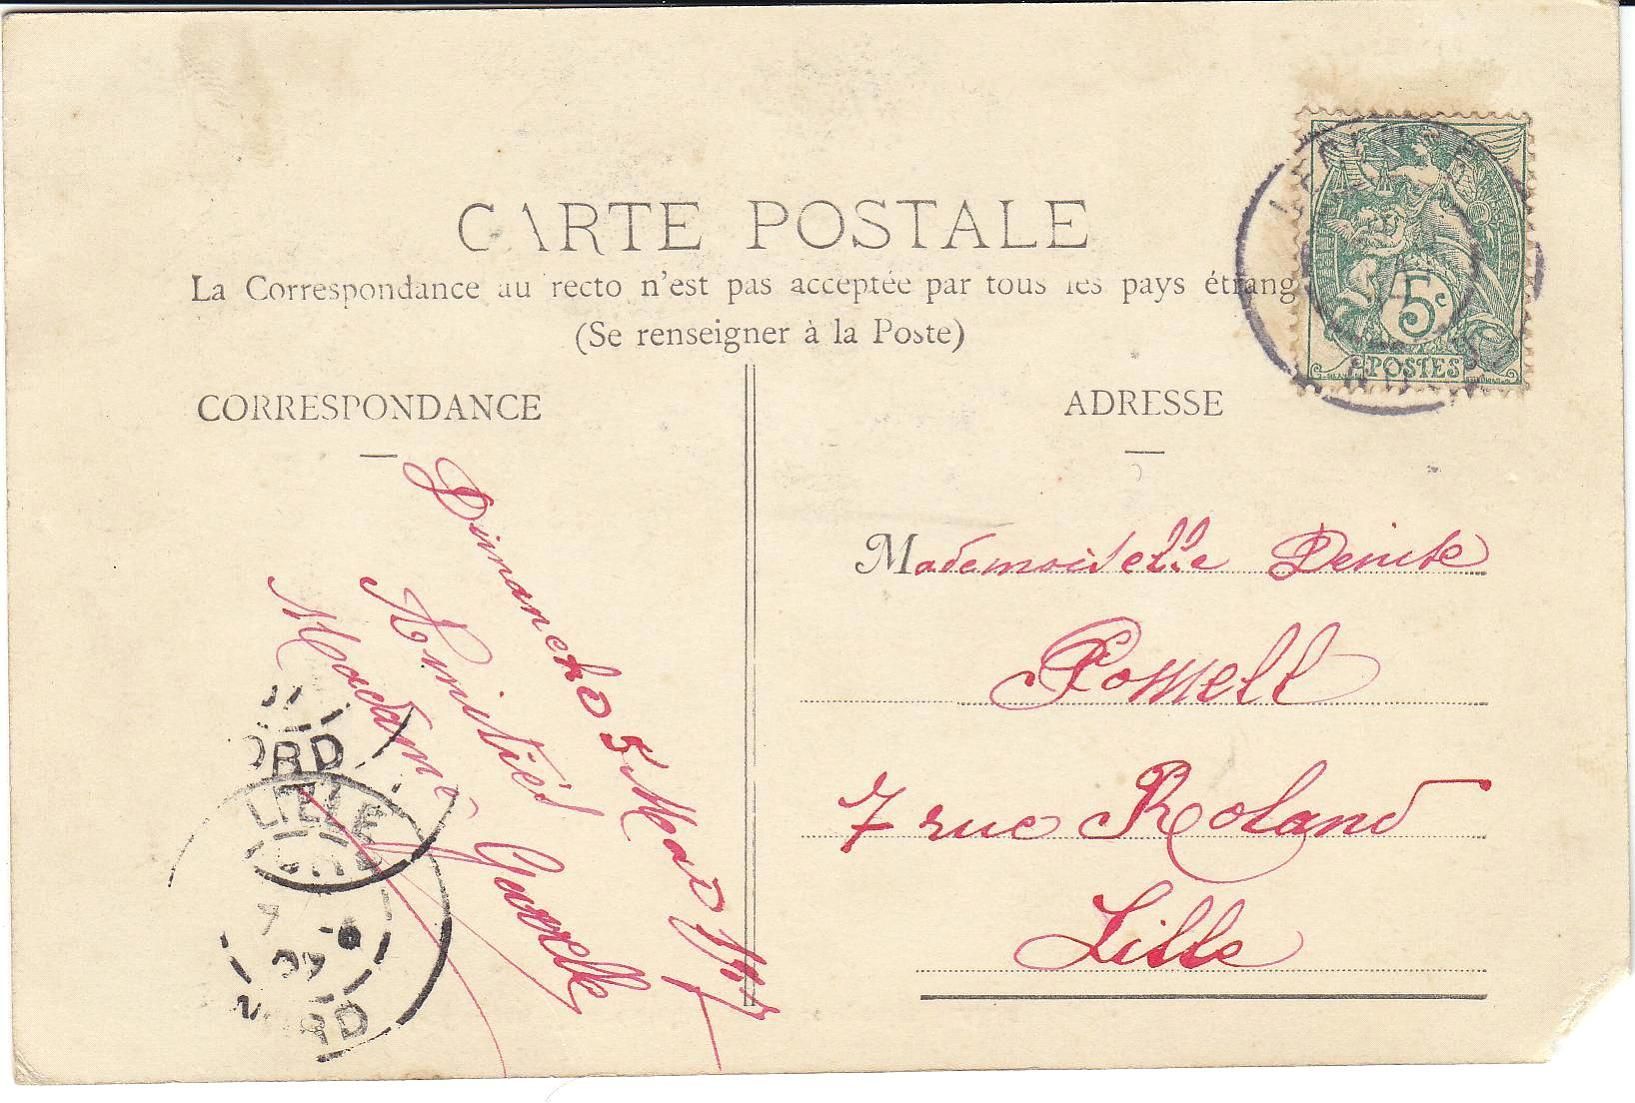 CARTE POSTALE
La Correspondance au recto n'est pas acceptée par tous les pays étrang
(Se renseigner à la Poste)
CORRESPONDANCE
ADRESSE
5c
POSTES
Dimanche 5 Mai
Amitiés
Madame
Mademoiselle Denise
Pomell
7 rue Roland
Lille
ORD
LILLE
NORD